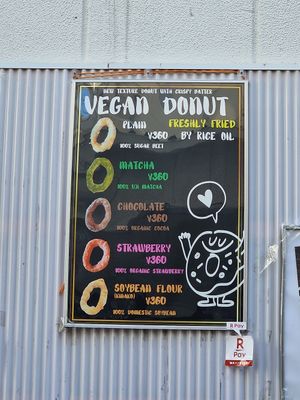 NEW TEXTURE DONUT WITH CRISPY BATTER
VEGAN DONUT
FRESHLY FRIED
BY RICE OIL
PLAIN
¥360
100% SUGAR BEET
MATCHA
¥360
100% UJI MATCHA
CHOCOLATE
¥360
100% ORGANIC COCOA
STRAWBERRY
¥360
100% ORGANIC STRAWBERRY
SOYBEAN FLOUR
(KINAKO)
¥360
100% DOMESTIC SOYBEAN
R Pay
R
Pay